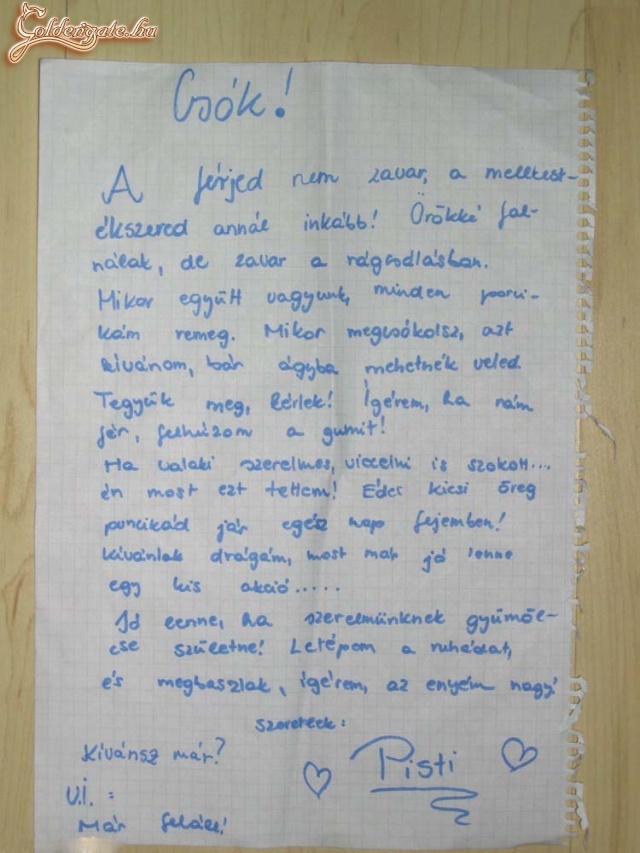 Goldengate.hu
Csók!
A férjed nem zavar, a melltest-
ékszered annál inkább! Örökké fal-
nálak, de zavar a rágcsálásban.
Mikor együtt vagyunk, minden porci-
kám remeg. Mikor megcsókolsz, azt
kívánom, bár ágyba mehetnék veled.
Tegyük meg, kérlek! Ígérem, ha rám
fér, felhúzom a gumit!
Ha valaki szerelmes, viccelni is szokott...
én most ezt tettem! Édes kicsi öreg
puncikád jár egész nap fejemben!
Kívánlak drágám, most már jó lenne
egy kis akció.....
Jó lenne, ha szerelmünknek gyümöl-
cse születne! Letépem a ruhádat,
és megbaszlak, ígérem, az enyém nagy!
szeretlek:
Kívánsz már?
Pisti
U.i. :
Már feláll!